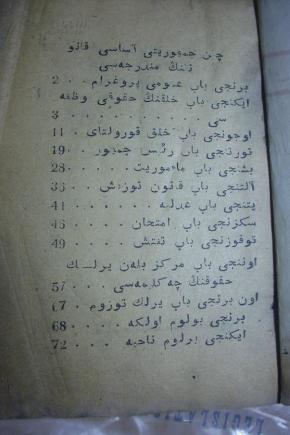 چن جمهوریتی آساسی قانو
ننڭ مندرجه‌سی
برنجی باپ عمومی پروغرام . . 2
ایکنجی باپ خلقنڭ حقوقی وظیفه
سی . . . . . . . . . . 3
اوچونجی باپ خلق قورولتای . 11
تورتنجی باپ رئیس جمهور . . 19
بشنجی باپ مأموریت . . . . 28
آلتنجی باپ قانون توزش . . 36
یتنجی باپ عدلیه . . . . . 41
سکزنجی باپ امتحان . . . . 46
توقوزنجی باپ تفتش . . . . 49
اوننجی باپ مرکز بلەن یرلک
حقوقنڭ چه‌کله‌مه‌سی . . . 57
اون برنجی باپ یرلك توزوم . . 67
برنجی بولوم اولکه . . . . . 68
ایکنجی بولوم ناحیه . . . . 72